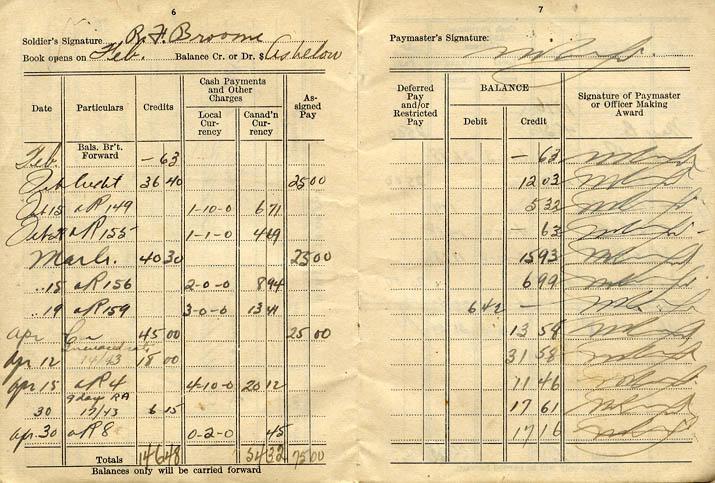 6
Soldier's Signature R. F. Broome
Book opens on Feb. Balance Cr. or Dr. $ As below
Date Particulars Credits Cash Payments and Other Charges Local Currency Canad'n Currency Assigned Pay
Feb. Bals. Br't. Forward — 63
Feb Credit 36 40 25 00
15 AR 149 1-10-0 6 71
AR 155 1-1-0 4 69
March. 40 30 25 00
..15 AR 156 2-0-0 8 94
..19 AR 159 3-0-0 13 41
Apr Cr 45 00 25 00
Apr 12 14/43 18 00
Apr 15 AR 4 4-10-0 20 12
30 9 days RA 17/43 6 15
Apr. 30 AR 8 0-2-0 45
Totals 146 48 54 32 75 00
Balances only will be carried forward
7
Paymaster's Signature:
Deferred Pay and/or Restricted Pay BALANCE Debit Credit Signature of Paymaster or Officer Making Award
— 63
12 03
5 32
— 63
15 93
6 99
6 42 —
13 58
31 58
11 46
17 61
17 16